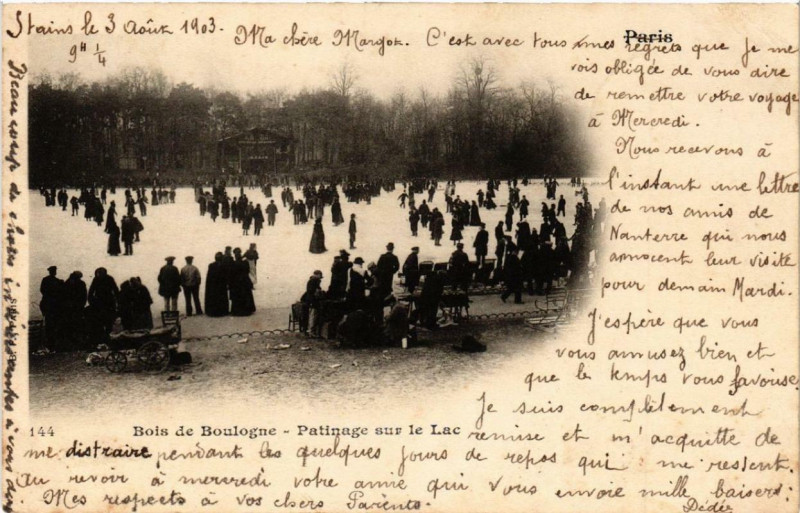 Stains le 3 Août 1903.
9H 1/4
Paris
Ma chère Margot. C'est avec tous mes regrets que je me
vois obligée de vous dire
de remettre votre voyage
à Mercredi.
Nous recevons à
l'instant une lettre
de nos amis de
Nanterre qui nous
annoncent leur visite
pour demain Mardi.
J'espère que vous
vous amusez bien et
que le temps vous favorise.
Je suis complètement
144 Bois de Boulogne - Patinage sur le Lac
remise et m'acquitte de
me distraire pendant les quelques jours de repos qui me restent.
Au revoir à mercredi votre amie qui vous envoie mille baisers:
Mes respects à vos chers Parents.
Dédée
Beaucoup de choses à vous dire